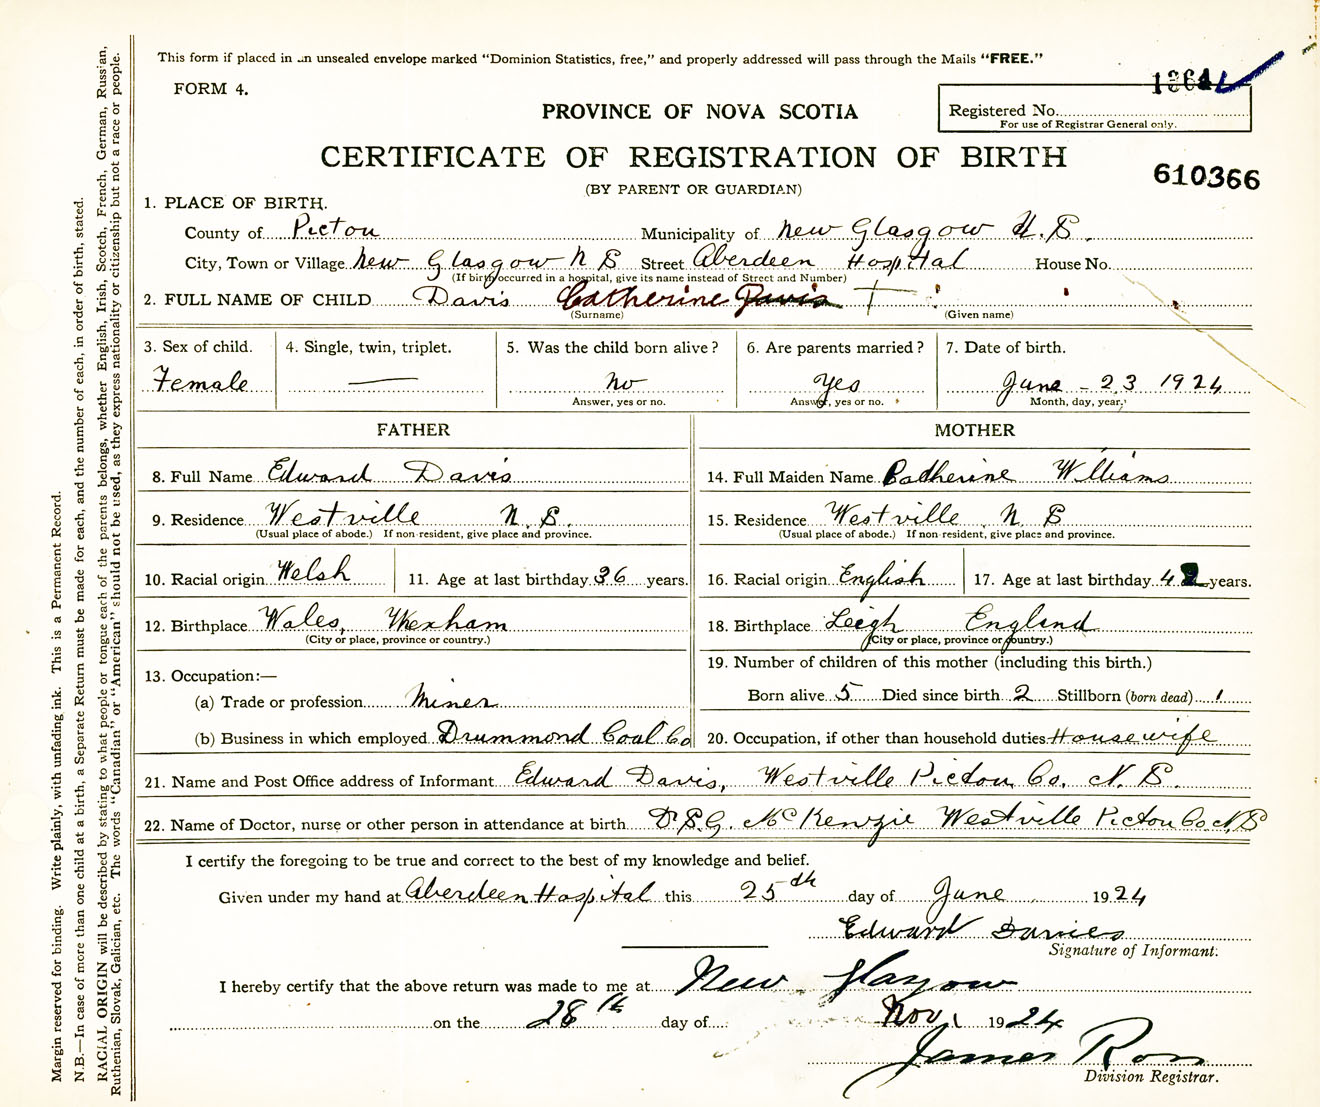 This form if placed in an unsealed envelope marked "Dominion Statistics, free," and properly addressed will pass through the Mails "FREE."
FORM 4.
PROVINCE OF NOVA SCOTIA
1364
Registered No.
For use of Registrar General only.
CERTIFICATE OF REGISTRATION OF BIRTH
(BY PARENT OR GUARDIAN)
610366
1. PLACE OF BIRTH.
County of Pictou Municipality of New Glasgow N.S.
City, Town or Village New Glasgow N S Street Aberdeen Hospital House No.
(If birth occurred in a hospital, give its name instead of Street and Number)
2. FULL NAME OF CHILD Davis Catherine Davis
(Surname) (Given name)
3. Sex of child. 4. Single, twin, triplet. 5. Was the child born alive? 6. Are parents married? 7. Date of birth.
Female — No Yes June - 23 1924
Answer, yes or no. Answer, yes or no. Month, day, year.
FATHER MOTHER
8. Full Name Edward Davis 14. Full Maiden Name Catherine Williams
9. Residence Westville N.S. 15. Residence Westville N.S
(Usual place of abode.) If non-resident, give place and province. (Usual place of abode.) If non-resident, give place and province.
10. Racial origin Welsh 11. Age at last birthday 36 years. 16. Racial origin English 17. Age at last birthday 4 years.
12. Birthplace Wales, Wexham 18. Birthplace Leigh England
(City or place, province or country.) (City or place, province or country.)
13. Occupation:— 19. Number of children of this mother (including this birth.)
(a) Trade or profession Miner Born alive 5 Died since birth 2 Stillborn (born dead) 1
(b) Business in which employed Drummond Coal Co 20. Occupation, if other than household duties Housewife
21. Name and Post Office address of Informant Edward Davis, Westville Pictou Co. N.S.
22. Name of Doctor, nurse or other person in attendance at birth Dr S.G. McKenzie Westville Pictou Co. N.S
I certify the foregoing to be true and correct to the best of my knowledge and belief.
Given under my hand at Aberdeen Hospital this 25th day of June 1924
Edward Davies
Signature of Informant.
I hereby certify that the above return was made to me at New Glasgow
on the 28th day of Nov. 1924
James Ross
Division Registrar.
Margin reserved for binding. Write plainly, with unfading ink. This is a Permanent Record.
N.B.—In case of more than one child at a birth, a Separate Return must be made for each, and the number of each, in order of birth, stated.
RACIAL ORIGIN will be described by stating to what people or tongue each of the parents belongs, whether English, Irish, Scotch, French, German, Russian,
Ruthenian, Slovak, Galician, etc. The words "Canadian" or "American" should not be used, as they express nationality or citizenship but not a race or people.